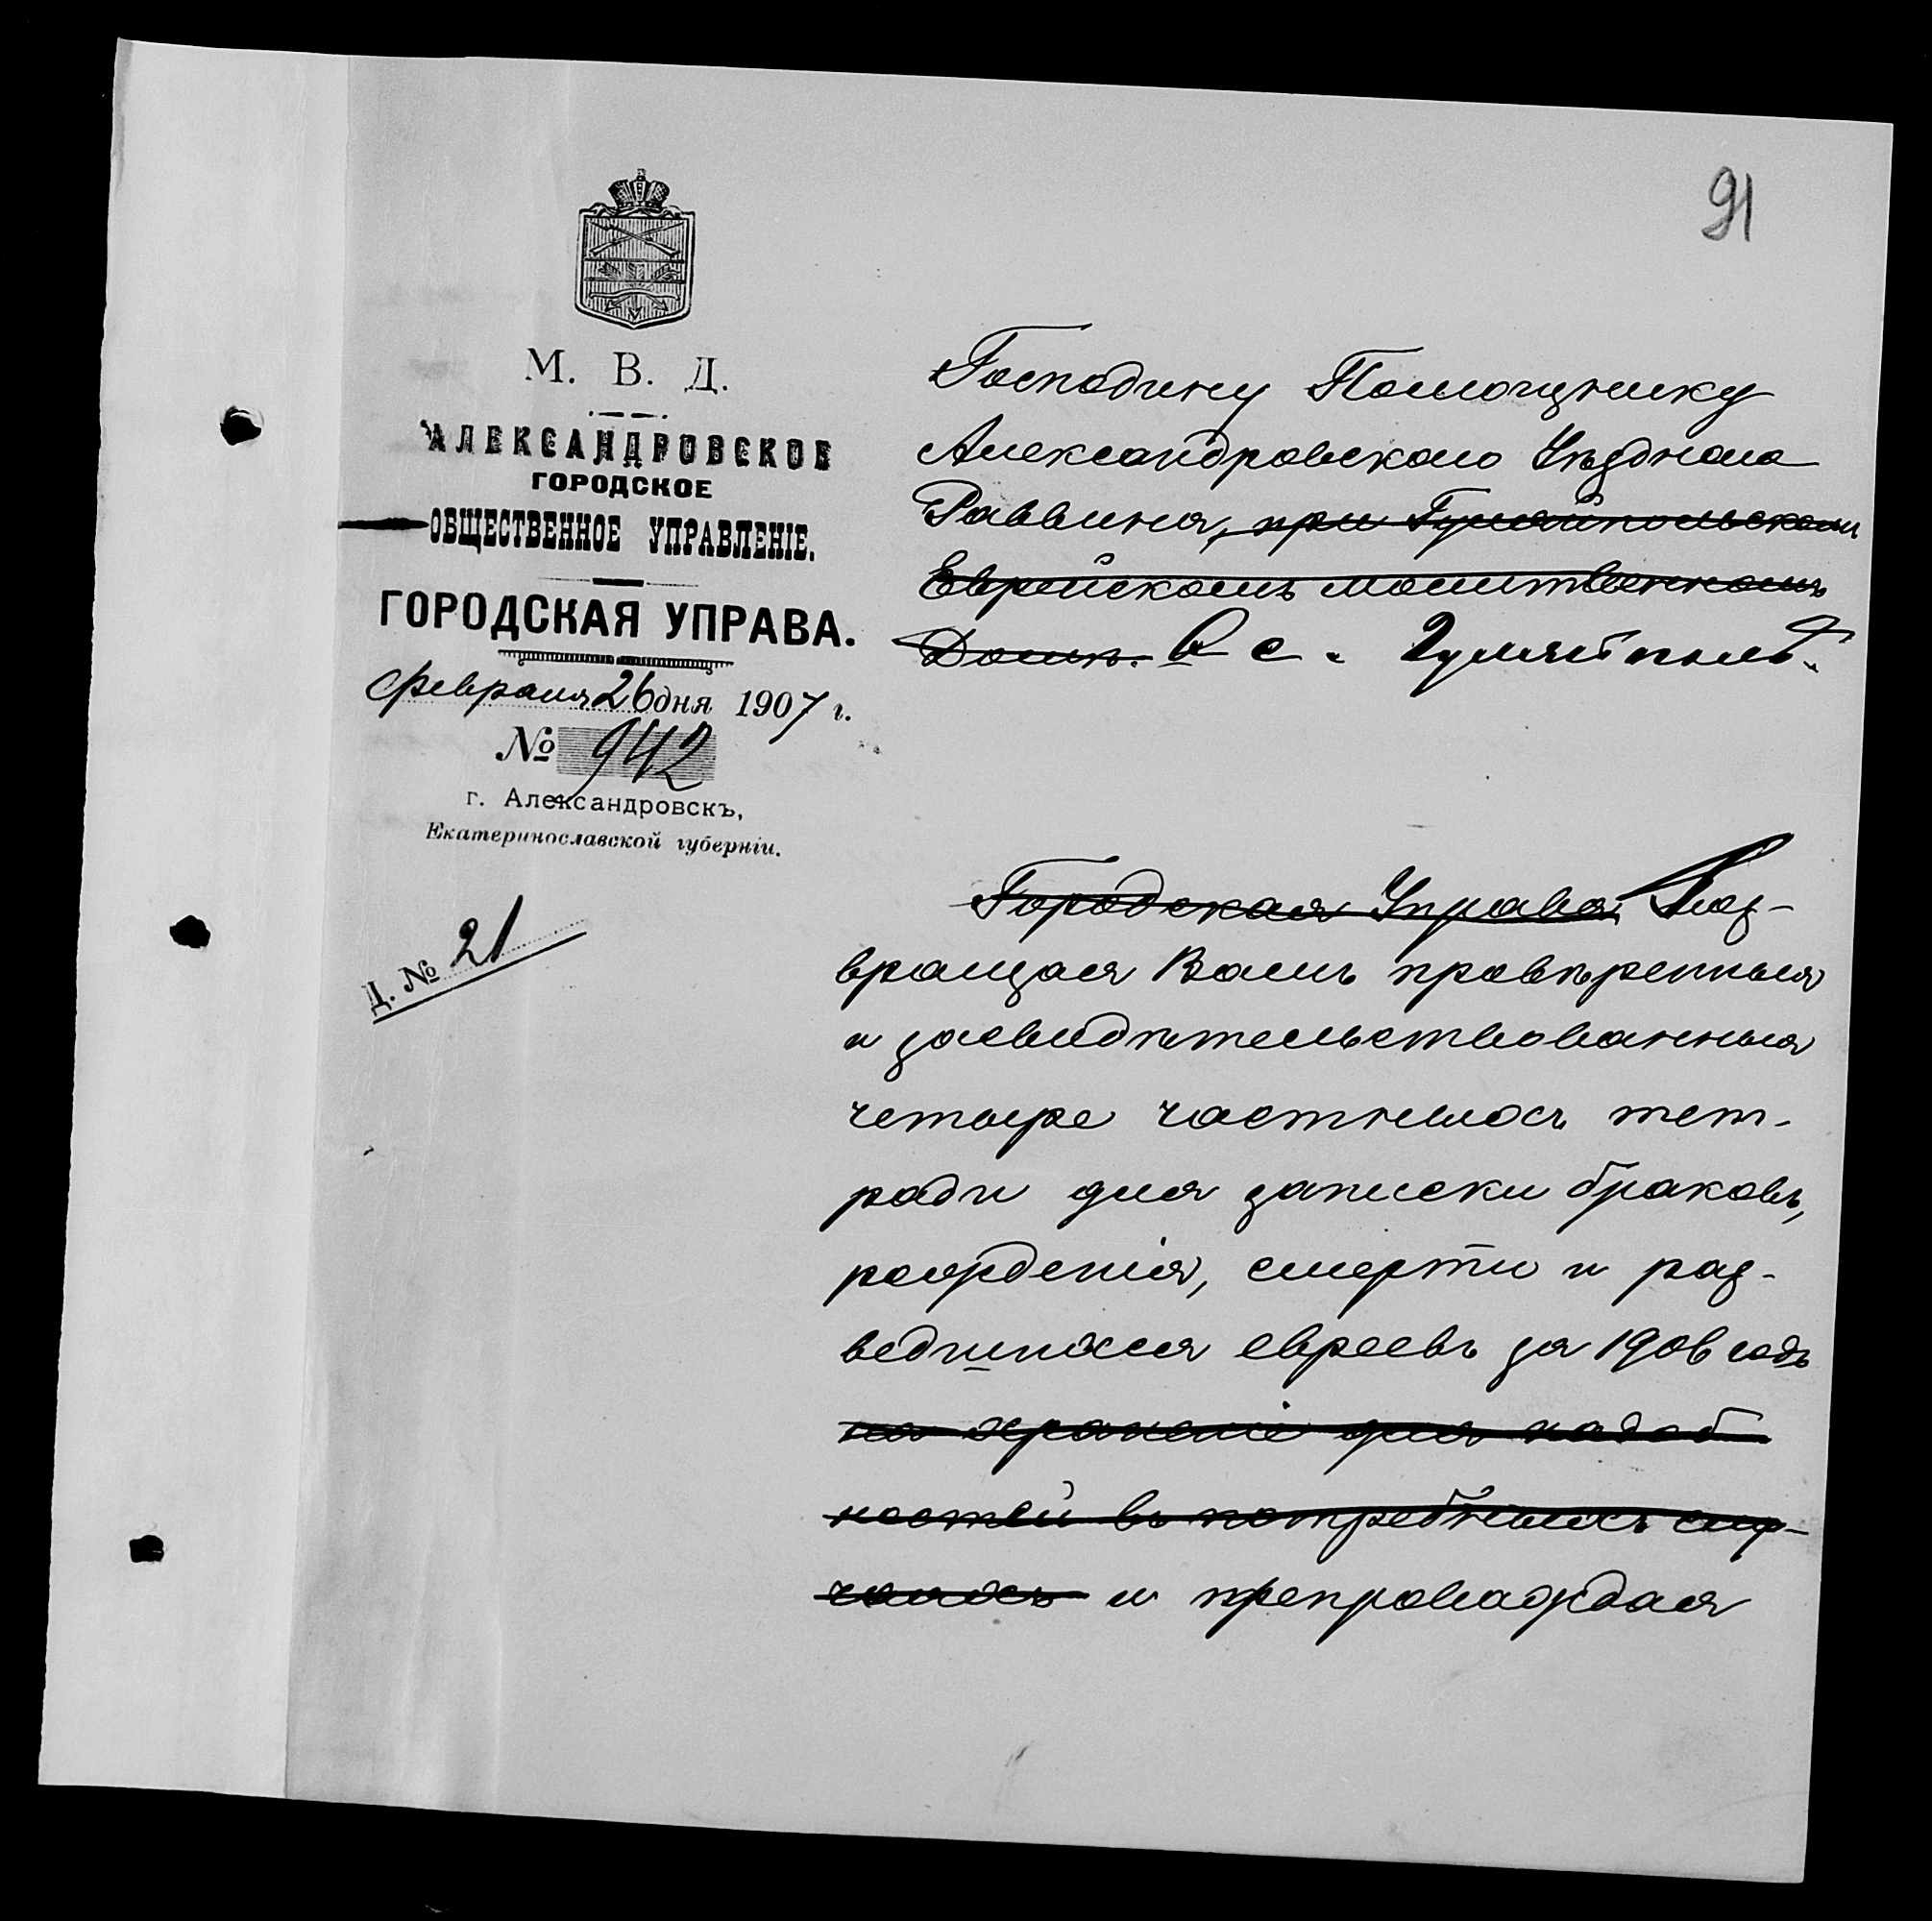 91
М. В. Д.
АЛЕКСАНДРОВСКОЕ
ГОРОДСКОЕ
ОБЩЕСТВЕННОЕ УПРАВЛЕНІЕ.
ГОРОДСКАЯ УПРАВА.
Февраля 26 дня 1907 г.
№ 942
г. Александровскъ,
Екатеринославской губерніи.
Д. № 21
Господину Помощнику
Александровскаго Уѣзднаго
Раввина, при Гуляйпольскомъ
Еврейскомъ молитвенномъ
Домѣ. В с. Гуляйполѣ.
Городская Управа, Воз-
вращая Вамъ провѣренныя
и засвидѣтельствованныя
четыре частныхъ тет-
ради для записки браковъ,
рожденія, смерти и раз-
ведшихся евреевъ за 1906 годъ
на храненіе для надоб-
ностей въ потребныхъ слу-
чаяхъ и препровождая